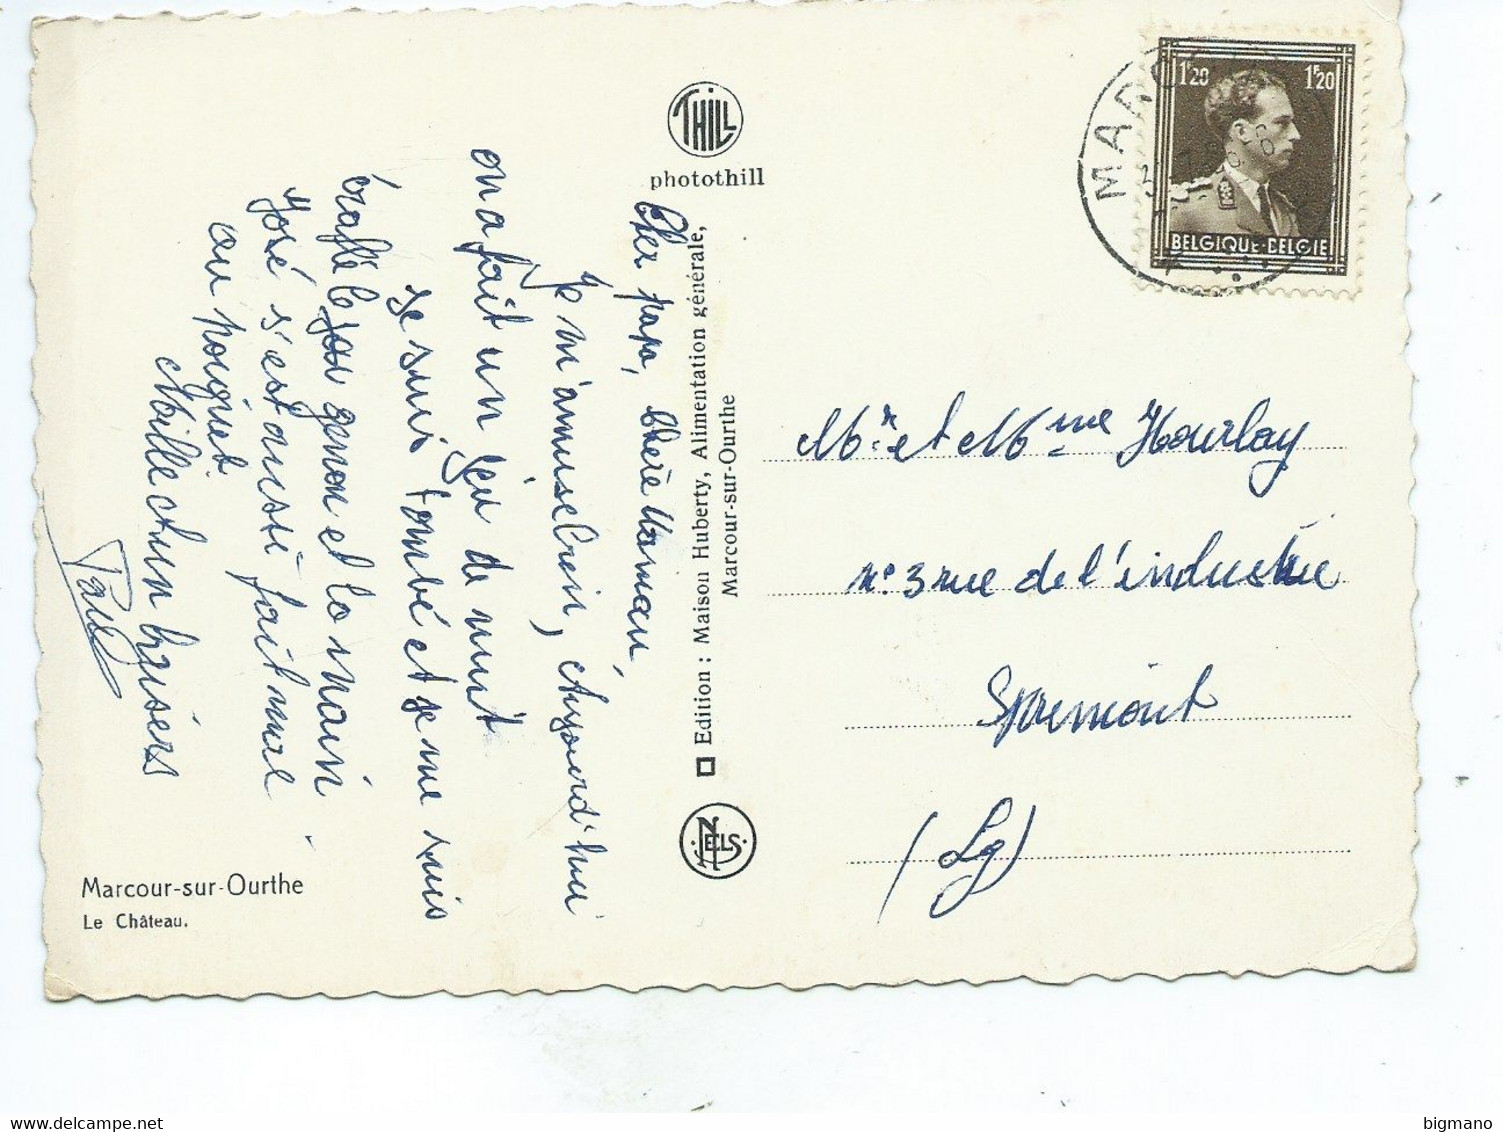 THILL
photothill
Cher papa, Chère Maman,
Je m'amuse bien, Aujourd'hui
on a fait un jeu de nuit
Je suis tombé et je me suis
éraflé le genou et la main
José s'est aussi fait mal
au poignet
Mille et un baisers
Paul
Edition : Maison Huberty, Alimentation générale,
Marcour-sur-Ourthe
NELS
Marcour-sur-Ourthe
Le Château.
1F20 1F20
BELGIQUE-BELGIE
Mr et Mme Hourlay
n° 3 rue de l'industrie
Sprimont
(Lg)
www.delcampe.net
bigmano